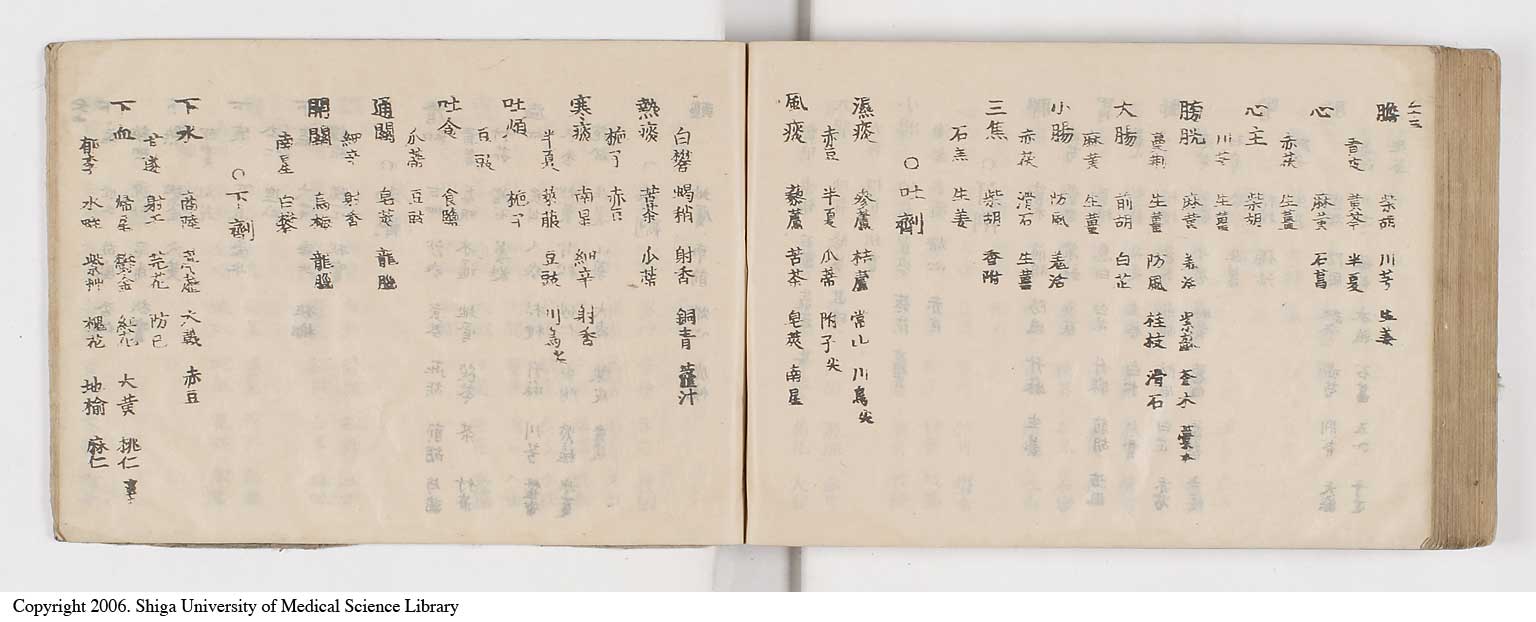 膽 柴胡 川芎 生姜
青皮 黄芩 半夏
心 麻黄 石菖
赤茯 生薑
心主 柴胡
川芎 生薑
膀胱 麻黄 羌活 黄蘗 蒼木 藁本
蔓荊 生薑 防風 桂枝 滑石
大腸 前胡 白芷
麻黄 生薑
小腸 防風 羌活
赤茯 滑石 生薑
三焦 柴胡 香附
石羔 生姜
○吐劑
濕痰 參蘆 桔蘆 常山 川烏尖
赤豆 半夏 瓜蒂 附子尖
風痰 藜蘆 苦茶 皂莢 南星
白礬 蝎梢 射香 銅青 虀汁
熱痰 苦茶 小葉
梔子 赤豆
寒痰 南星 細辛 射香
半夏 藜蘆 豆豉 川烏尖
吐煩 梔子
豆豉
吐食 食鹽
瓜蒂 豆豉
通關 皂莢 龍腦
細辛 射香
開關 烏梅 龍腦
南星 白礬
○下劑
下水 商陸 大戟 赤豆
甘遂 射干 芫花 防已
下血 歸尾 欝金 紅花 大黄 桃仁
郁李 水蛭 紫艸 槐花 地榆 麻仁